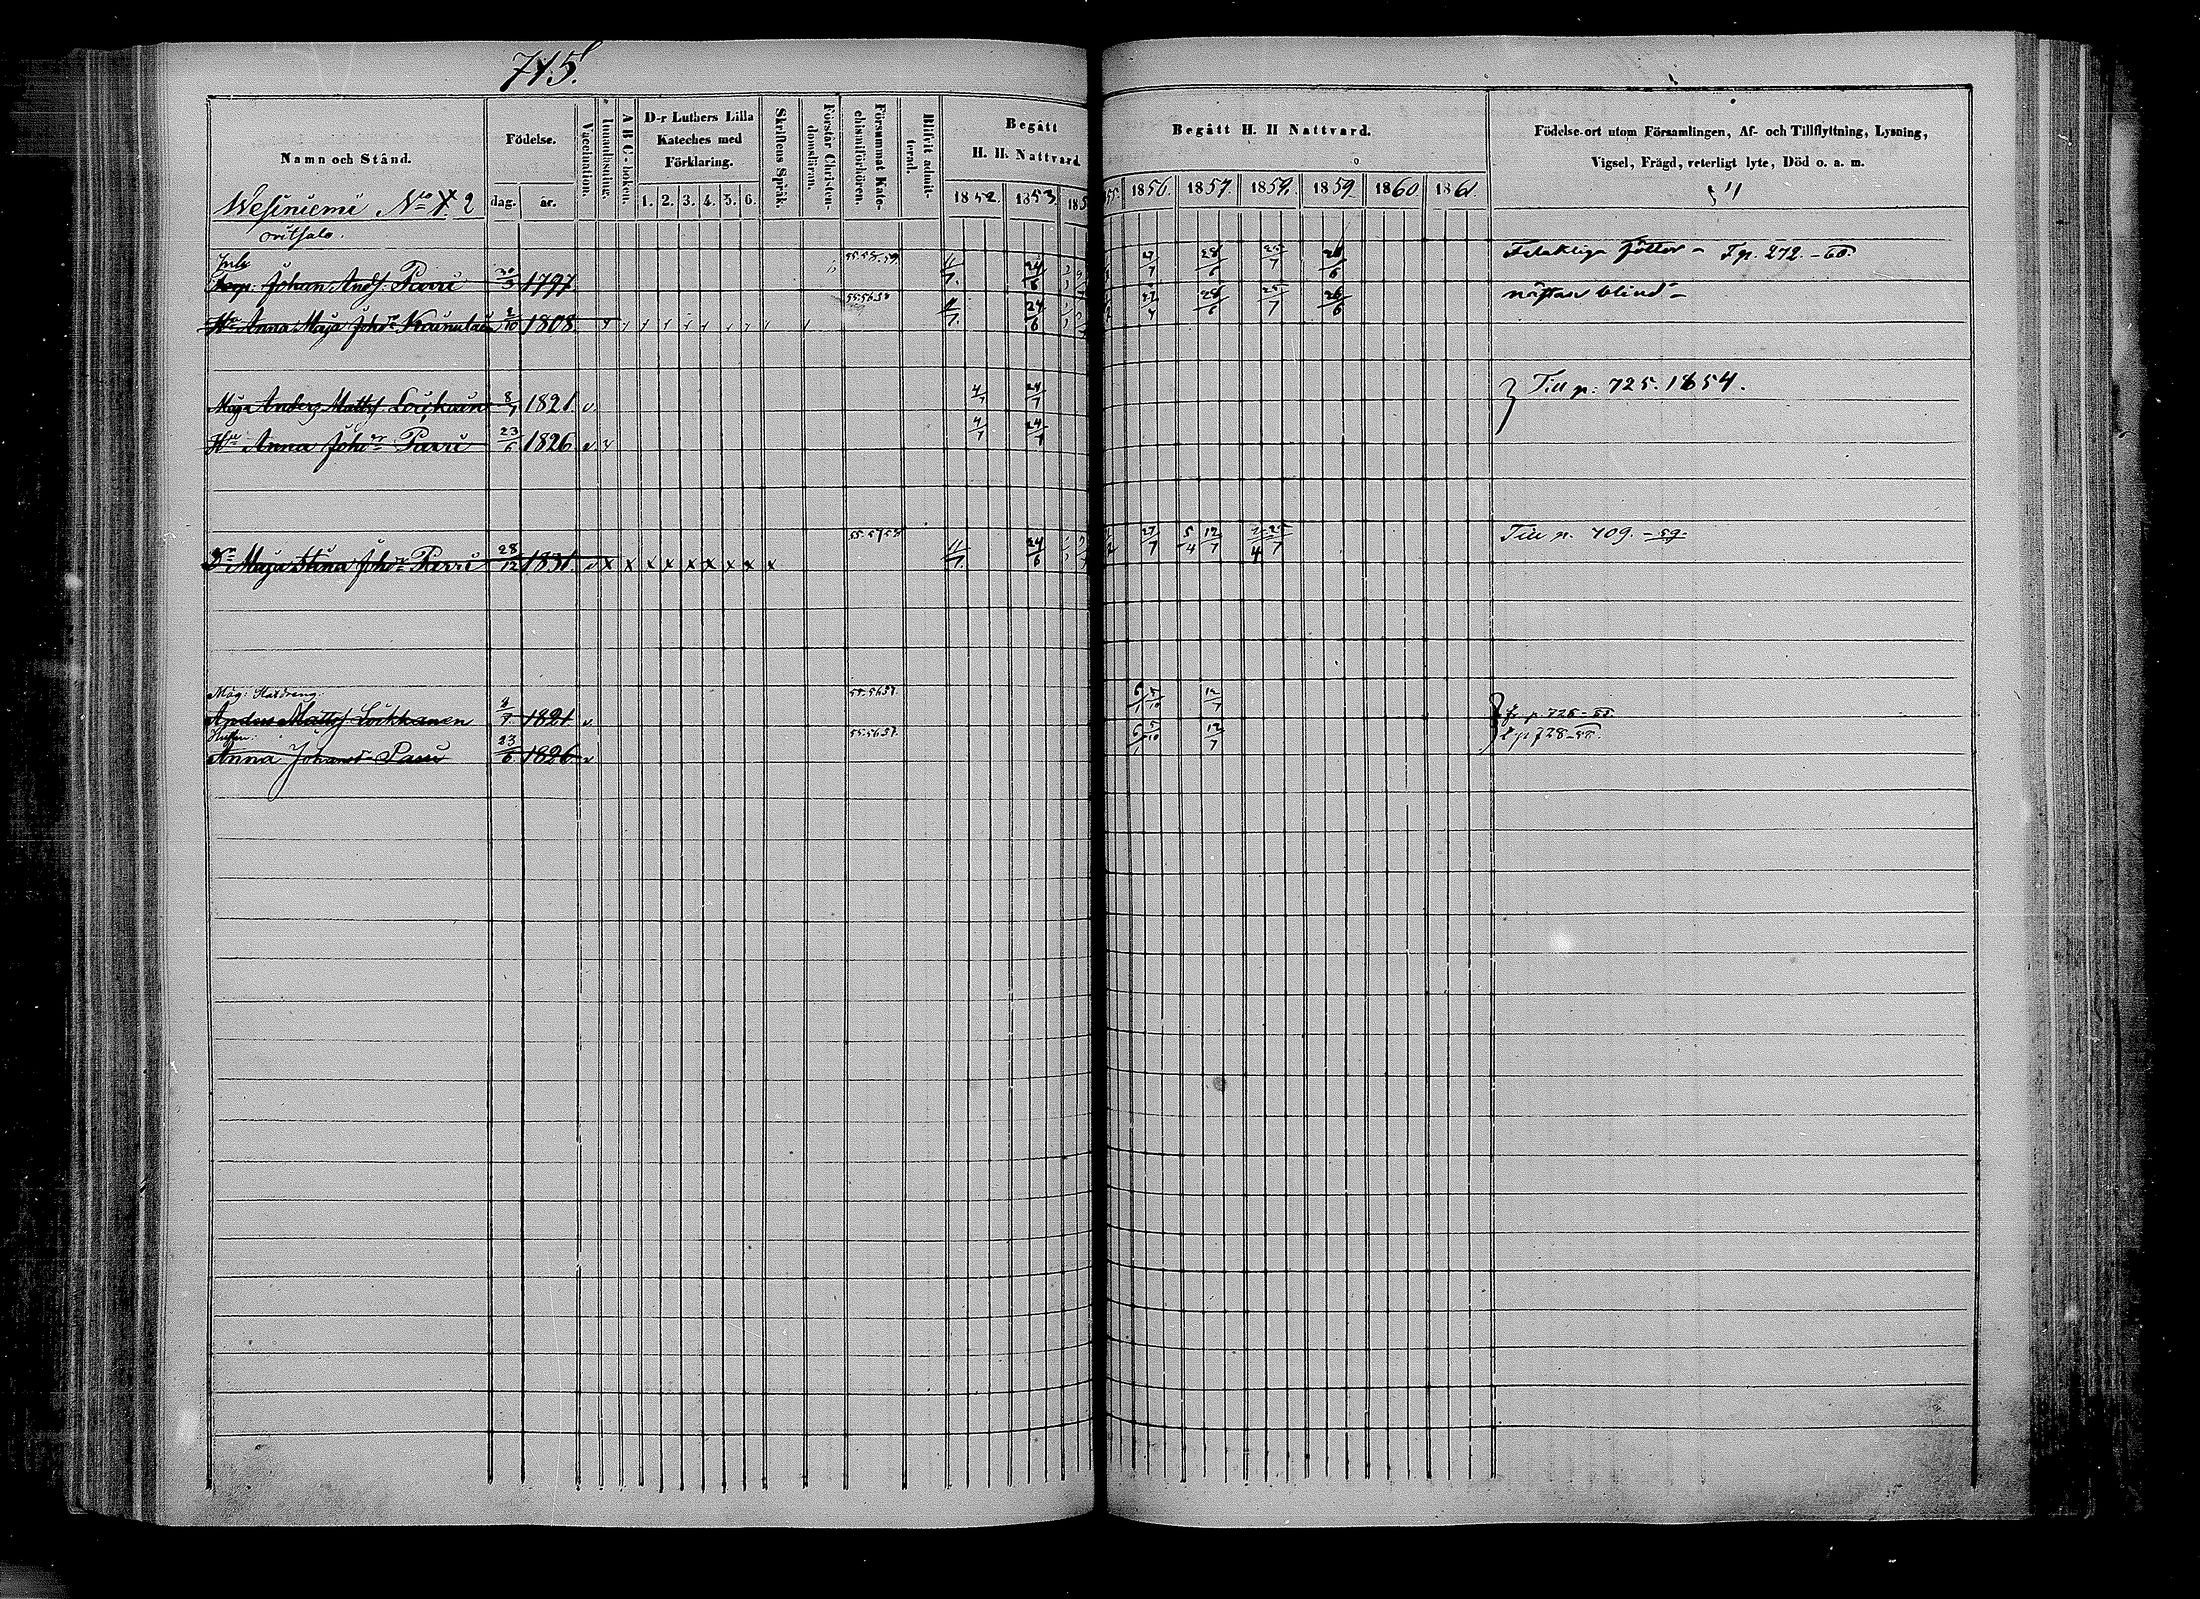 715.
Namn och Stånd.
Födelse.
dag.
år.
Vaccination.
Innanläsning.
A B C-boken.
D-r Luthers Lilla
Kateches med
Förklaring.
1. 2. 3. 4. 5. 6.
Skriftens Språk.
Förstår Christen-
domsläran.
Försummat Kate-
chismiförhören.
Blifvit admit-
terad.
Begått
H. H. Nattvard
1852. 1853. 185
Begått H. H Nattvard.
55. 1856. 1857. 1858. 1859. 1860 1861.
Födelse-ort utom Församlingen, Af- och Tillflyttning, Lysning,
Vigsel, Frägd, veterligt lyte, Död o. a. m.
Wesiniemi No 2
Inh
Johan Ands. Parri 30/3 1797 55.58.59 11/7. 24/6 27/7 28/6 25/7 26/6 fötter - Fp. 272. - 60.
Hu Anna Maja Johdr Kainulain 2/10 1808. 55.56.58 11/7. 24/6 28/6 25/7 26/6 nästan blind -
Måg Anders Matts. Loikkain 8/7 1821 v. 4/7 24/7 Till p. 725. 1854.
Hu Anna Johdr Parri 23/6 1826 v. 4/7 24/7
Dr Maja Stina Johdr Parri 28/12 1831. v x x x x x x x x x 55.57.58 11/7 24/6 27/7 5/4 12/7 2/4 25/7 Till p. 709. - 59.
Måg: 55.56.57. 6/1 5/10 12/7
Anders Matts. Loikkanen 8/7 1821 v fr. p. 725 - 55.
Hustru: 55.56.57. 6/1 5/10 12/7 t. p. 728 - 58.
Anna Johansd. Parri 23/6 1826 v